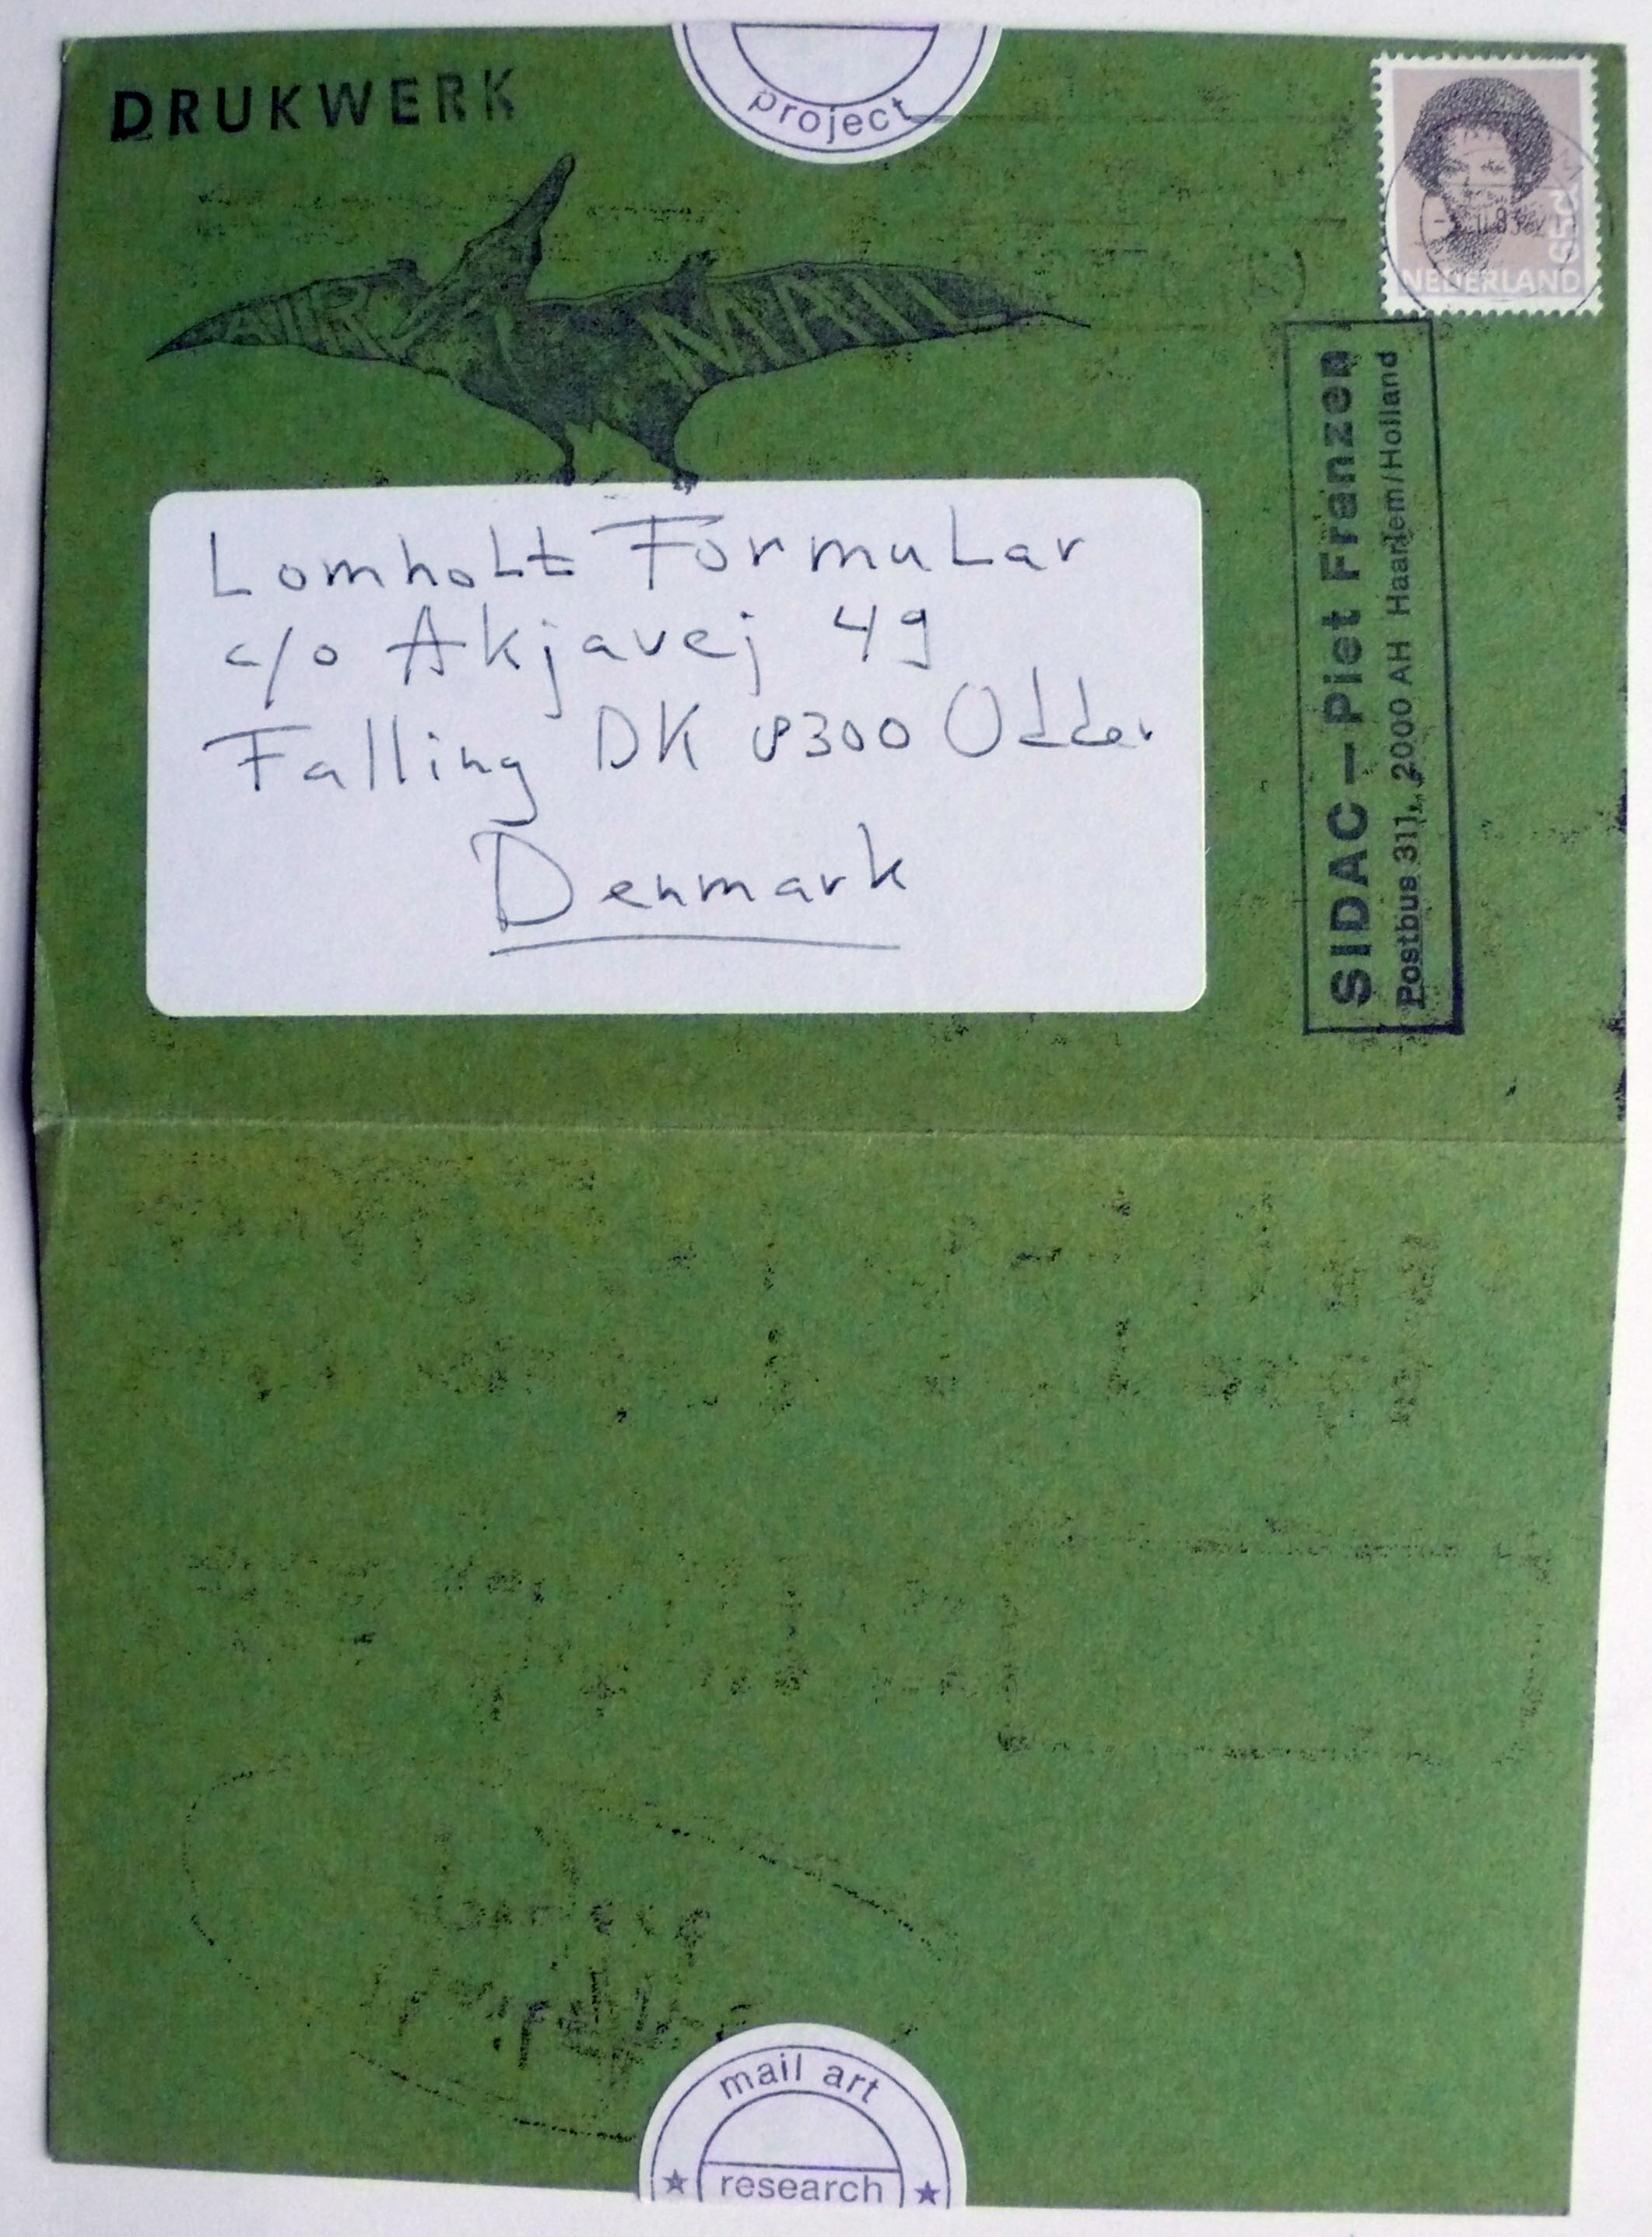 DRUKWERK
project
AIR MAIL
NEDERLAND
55c
SIDAC – Piet Franzen
Postbus 311, 2000 AH Haarlem/Holland
Lomholt Formular
c/o Akjavej 49
Falling DK 8300 Odder
Denmark
mail art
research